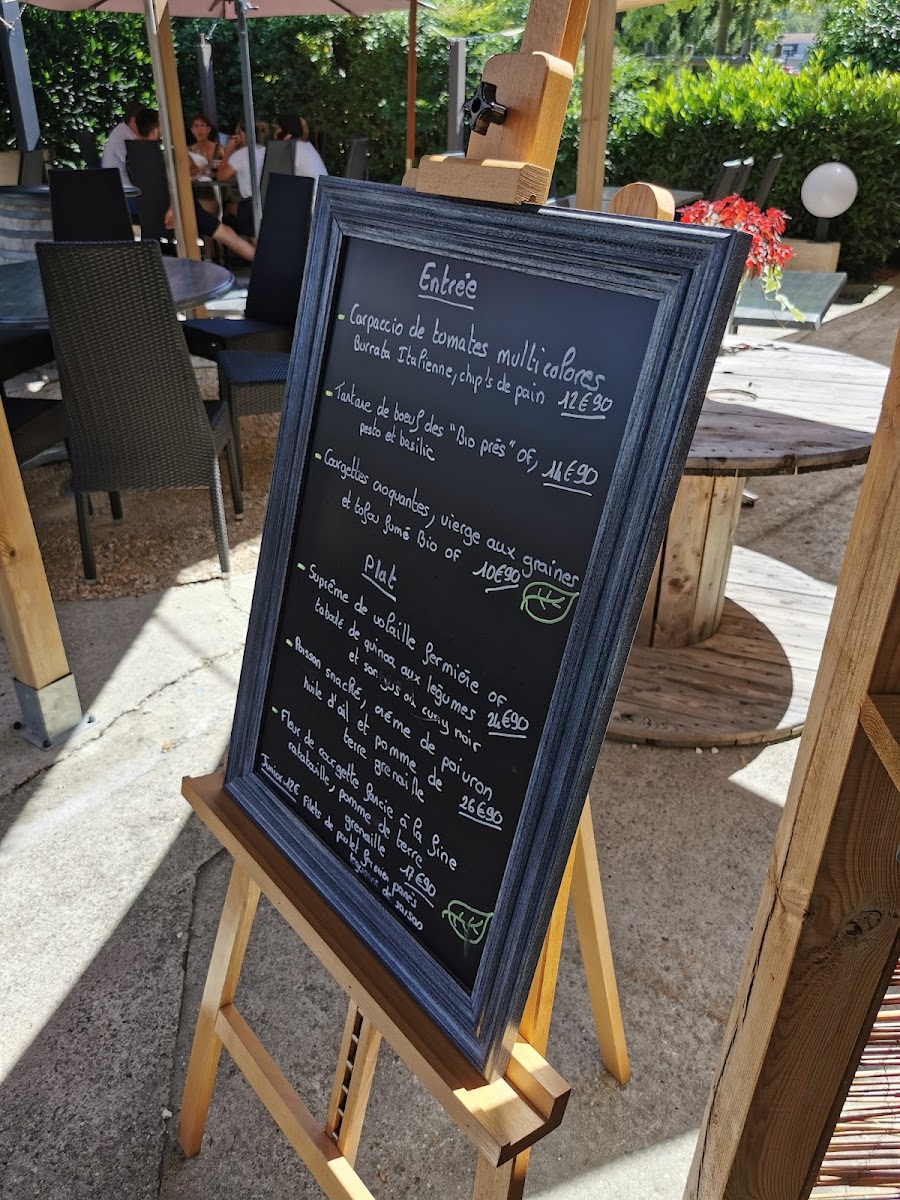 Entrée
- Carpaccio de tomates multicolores
Burrata Italienne, chip's de pain 12€90
- Tartare de boeuf des "Bio prés" OF, 14€90
pesto et basilic
- Courgettes croquantes, vierge aux graines
et tofou fumé Bio OF 10€90
Plat
- Suprême de volaille fermière OF
taboulé de quinoa aux légumes 24€90
et son jus au curry noir
- Poisson snacké, crème de poivron
huile d'ail et pomme de 26€90
terre grenaille
- Fleur de courgette farcie à la fine
ratataille, pomme de terre
grenaille 17€90
Junior 12€ Filets de poulet fermier panés
légumes de saison